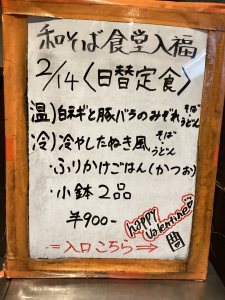 和そば食堂入福
2/14〈日替定食〉
温)白ネギと豚バラのみぞれ そば うどん
冷)冷やしたぬき風 そば うどん
・ふりかけごはん(かつお)
・小鉢2品
¥900-
happy Valentine
⇒入口こちら⇒